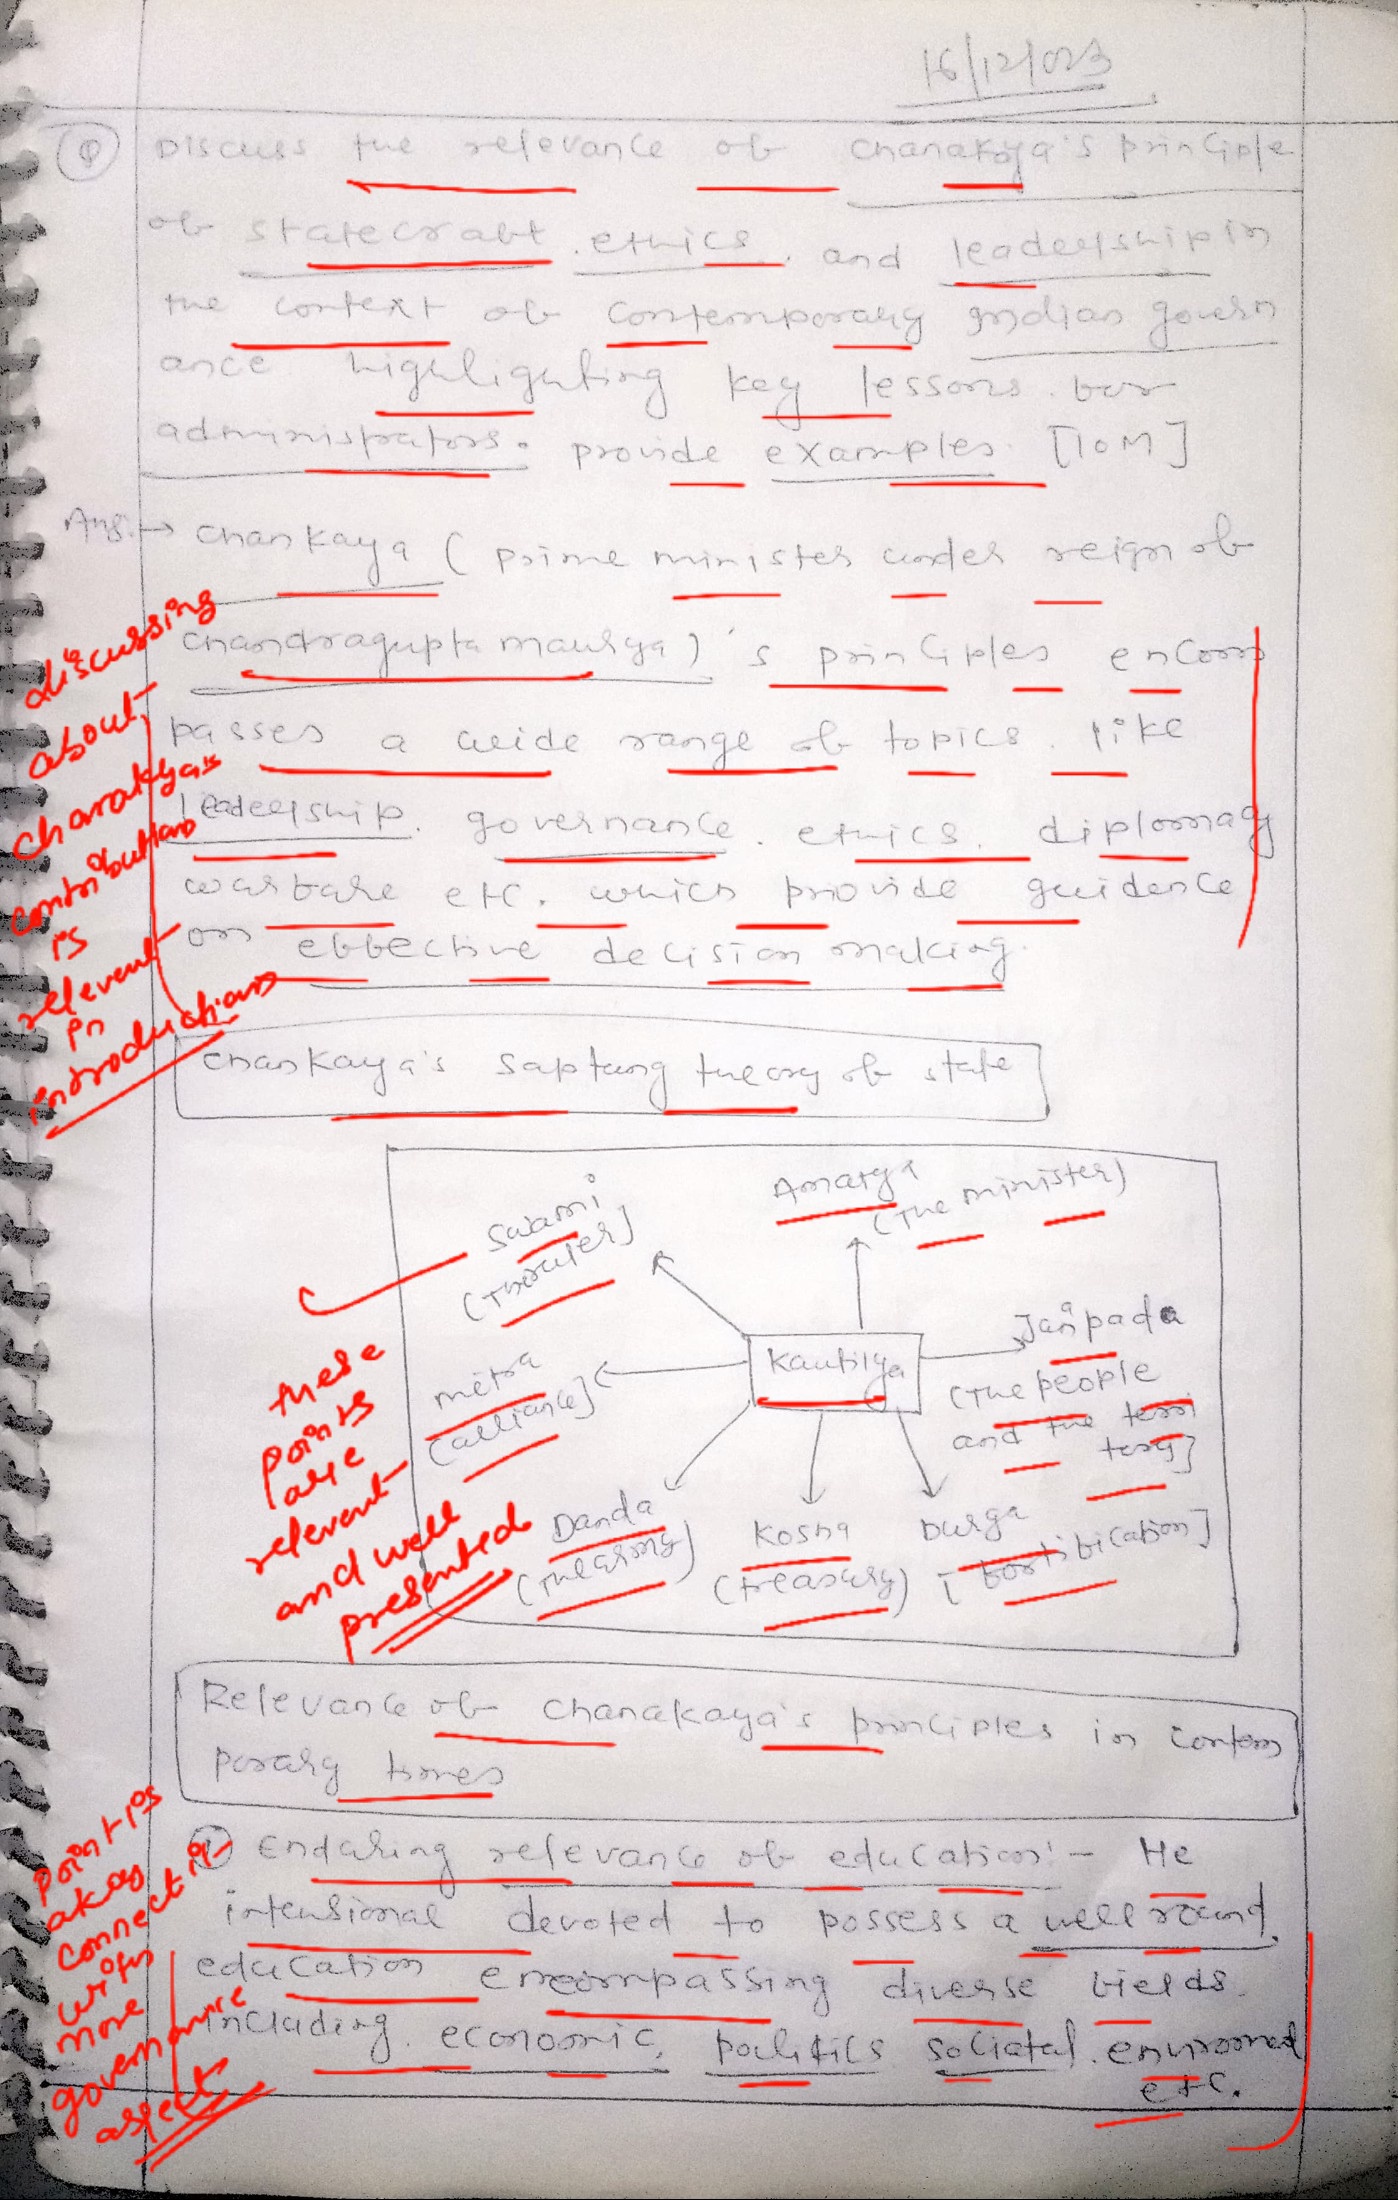 16/12/023
Q Discuss the relevance of Chanakya's principle
of statecraft, ethics, and leadership in
the context of contemporary Indian govern
ance highlighting key lessons for
administrators. provide examples. [10M]
Ans. → Chankaya (prime minister under reign of
Chandragupta maurya)'s principles encom
passes a wide range of topics. like
leadership. governance. ethics. diplomacy
warfare etc. which provide guidence
on effective decision making.
discussing
about
chanakya's
contribution
is
relevent
in
introduction
Chankaya's Saptang theory of state
Swami
(The ruler)
Amatya
(The minister)
Janpada
(The people
and the terri
tery]
Kautilya
mitra
(alliance]
Danda
(The army)
Kosha
(treasury)
Durga
[fortification]
these
points
are
relevent
and well
presented
Relevance of Chanakaya's principles in contem
porary times
① Enduring relevance of education:- He
intensional devoted to possess a well round
education encompassing diverse fields.
including. economic, politics societal. enviroment
etc.
point is
okay
connect it
with
more
governance
aspect